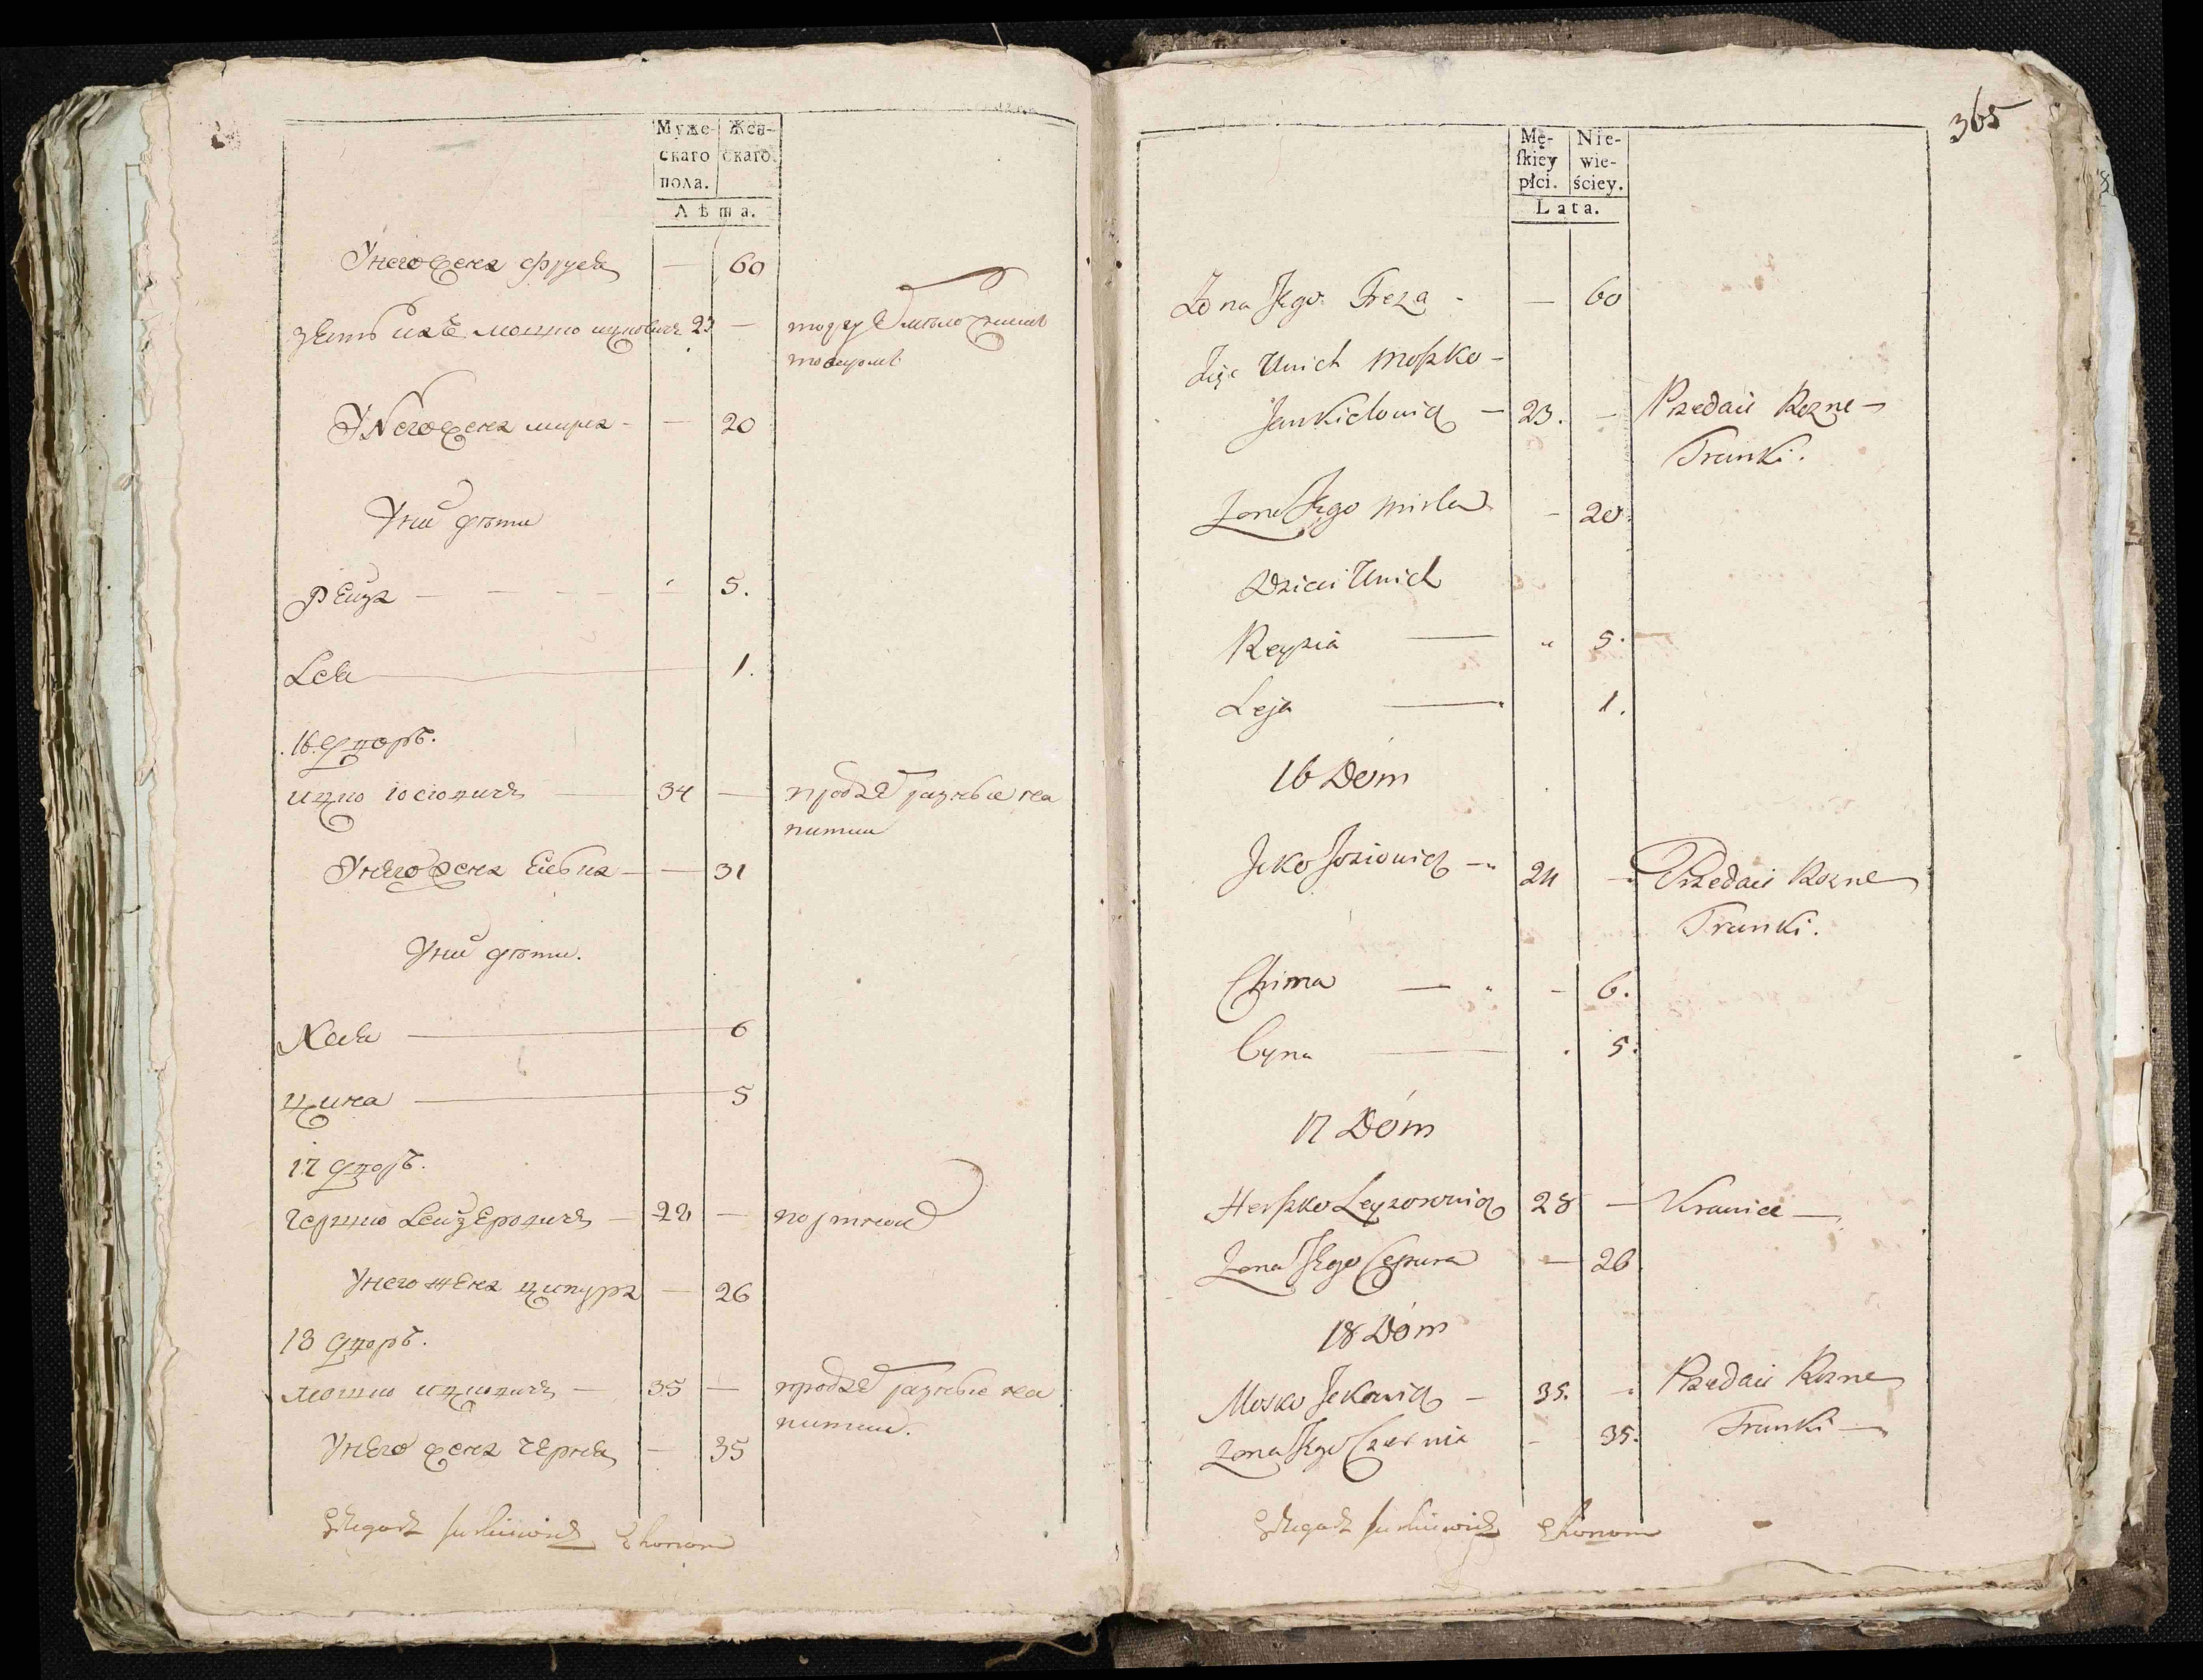 Муже-
скаго
пола.
Жен-
скаго
Лѣта.
Унего жена фрусӣя — 60
зять ихъ мошко 23 —
Унего жена мирла - — 20
Уних дѣти
Рейза — 5.
Лея 1.
16 дворъ.
ицко иосиовичъ — 34 — продаетъ разные на
питки
Унего жена — — 31
Уних дѣти.
Хая 6
цина 5
17 дворъ.
гершко Лейзеровичъ — 28 — портной
Унего жена ципура — 26
18 дворъ.
мошко ицковичъ — 35 — продаетъ разные на
питки.
Унего жена черня — 35
Ekonom
365
Mę-
ſkiey
płci.
Nie-
wie-
ściey.
Lata.
Żona Jego Freza - — 60
Zięć Unich Moszko-
Jankielowicz — 23. — Przedaie Rozne —
Trunki.
Zona Jego Mirla - 20.
Dzieci Unich
Reyzia — " 5.
Leja — 1.
16 Dom
Icko Joziowicz — 24 — Przedaie Rozne
Trunki.
Chima — - 6.
Cyna — 5.
17 Dóm
Herszko Leyzorowicz 28 — Krawiec —
Zona Jego Cepura — 26
18 Dóm
Mosko Ickowicz — 35. - Przedaie Rozne
Zona Jego Czernia - 35. Trunki —
Ekonom